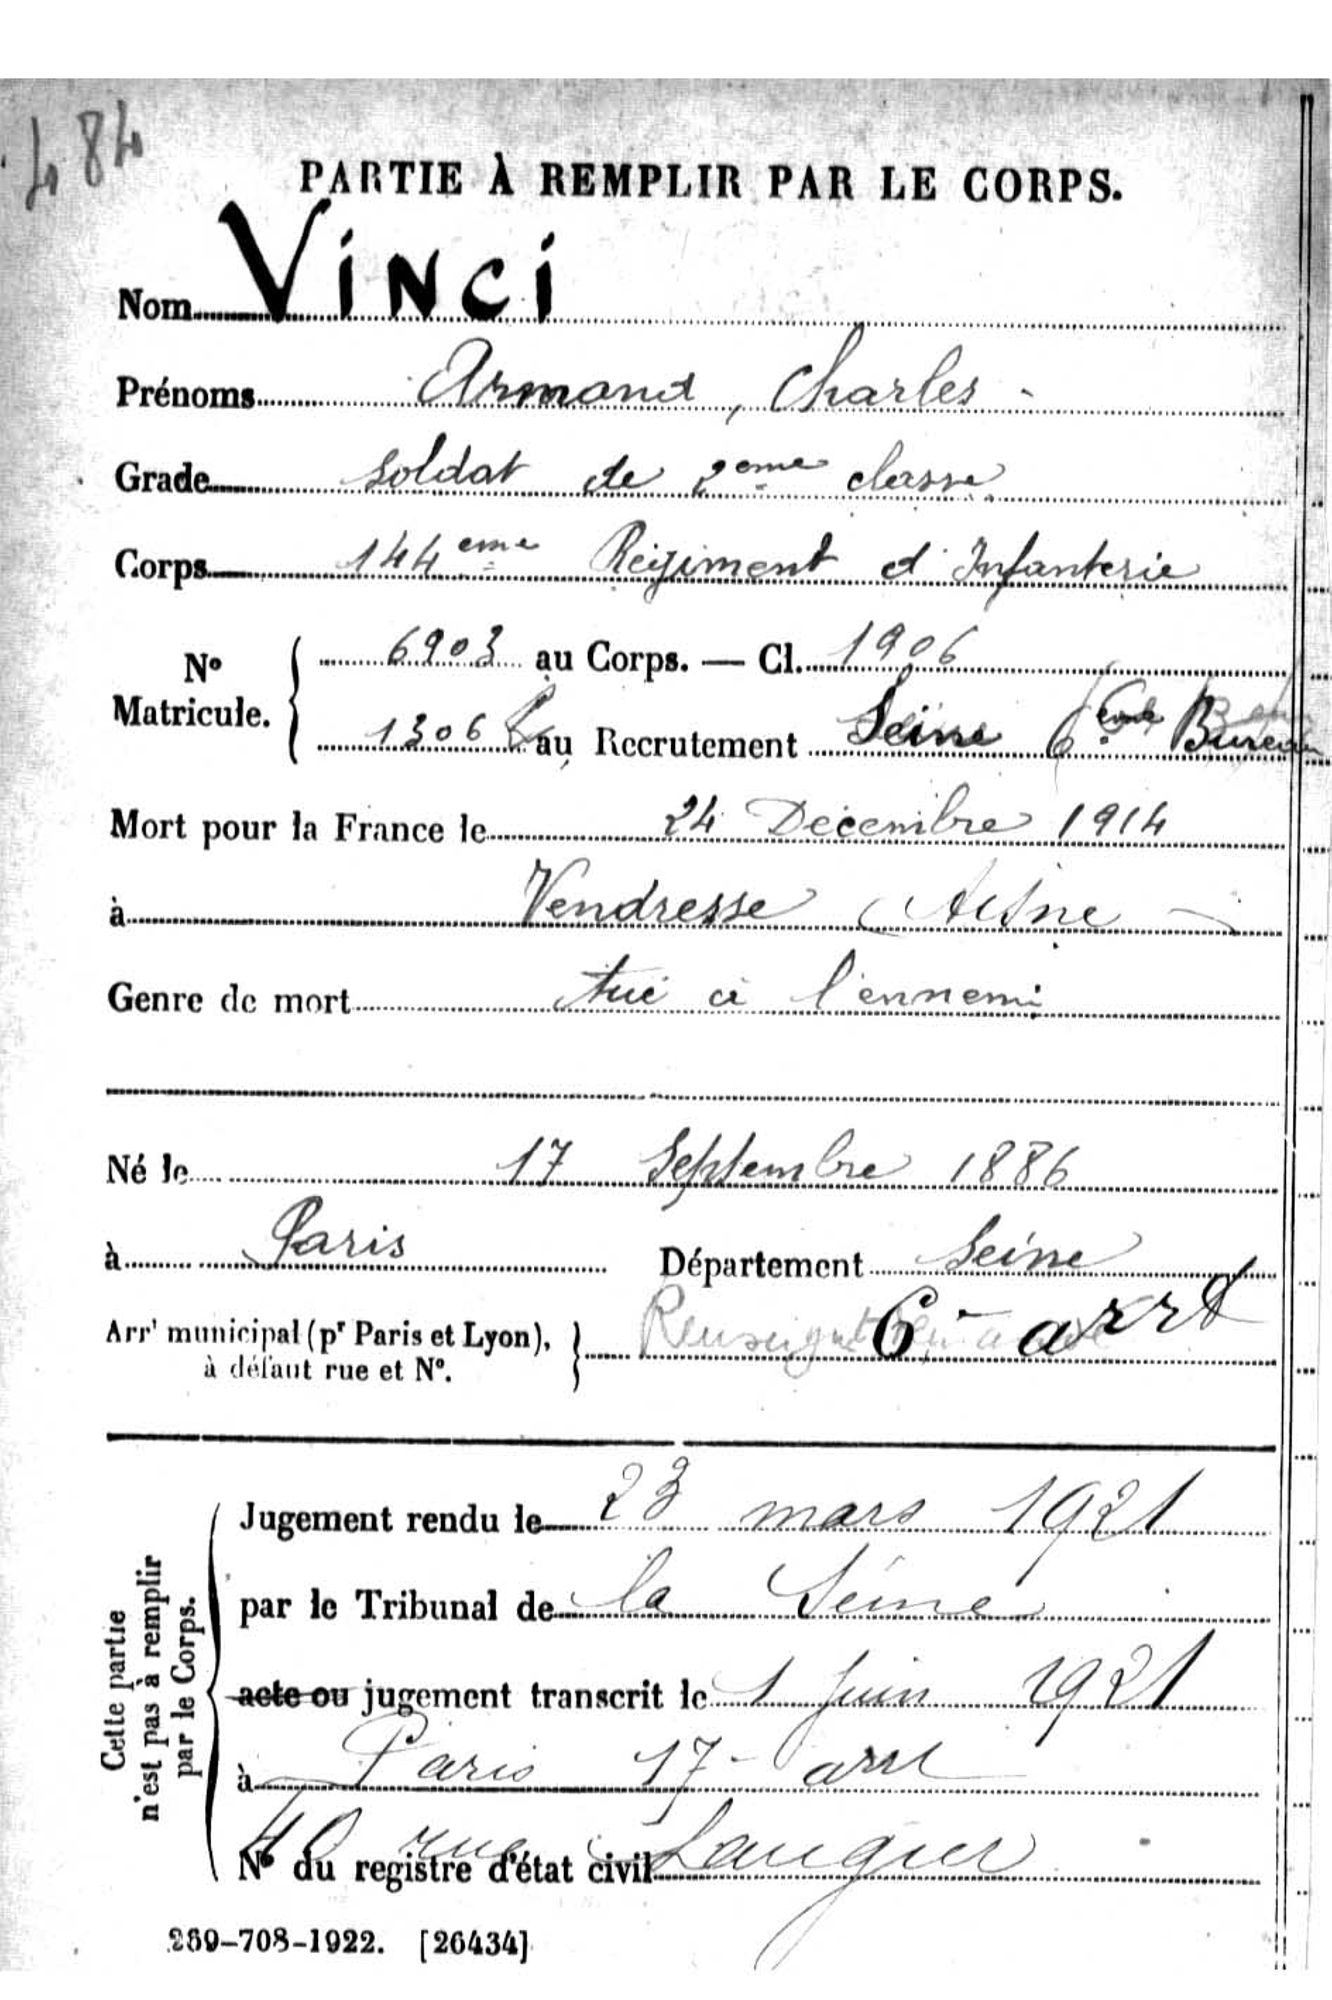 484
PARTIE À REMPLIR PAR LE CORPS.
Nom Vinci
Prénoms Armand, Charles -
Grade soldat de 2eme classe
Corps 144eme Régiment d'Infanterie
No Matricule. { 6903 au Corps. — Cl. 1906
1306 au Recrutement Seine 6eme Bureau
Mort pour la France le 24 Décembre 1914
à Vendresse (Aisne
Genre de mort tué à l'ennemi
Né le 17 Septembre 1886
à Paris Département Seine
Arrt municipal (pr Paris et Lyon), à défaut rue et No. } 6 - arrt
Cette partie n'est pas à remplir par le Corps.
Jugement rendu le 23 mars 1921
par le Tribunal de la Seine
acte ou jugement transcrit le 1 Juin 1921
à Paris 17 - arrt
40 rue Laugier
No du registre d'état civil
269-708-1922. [26434]